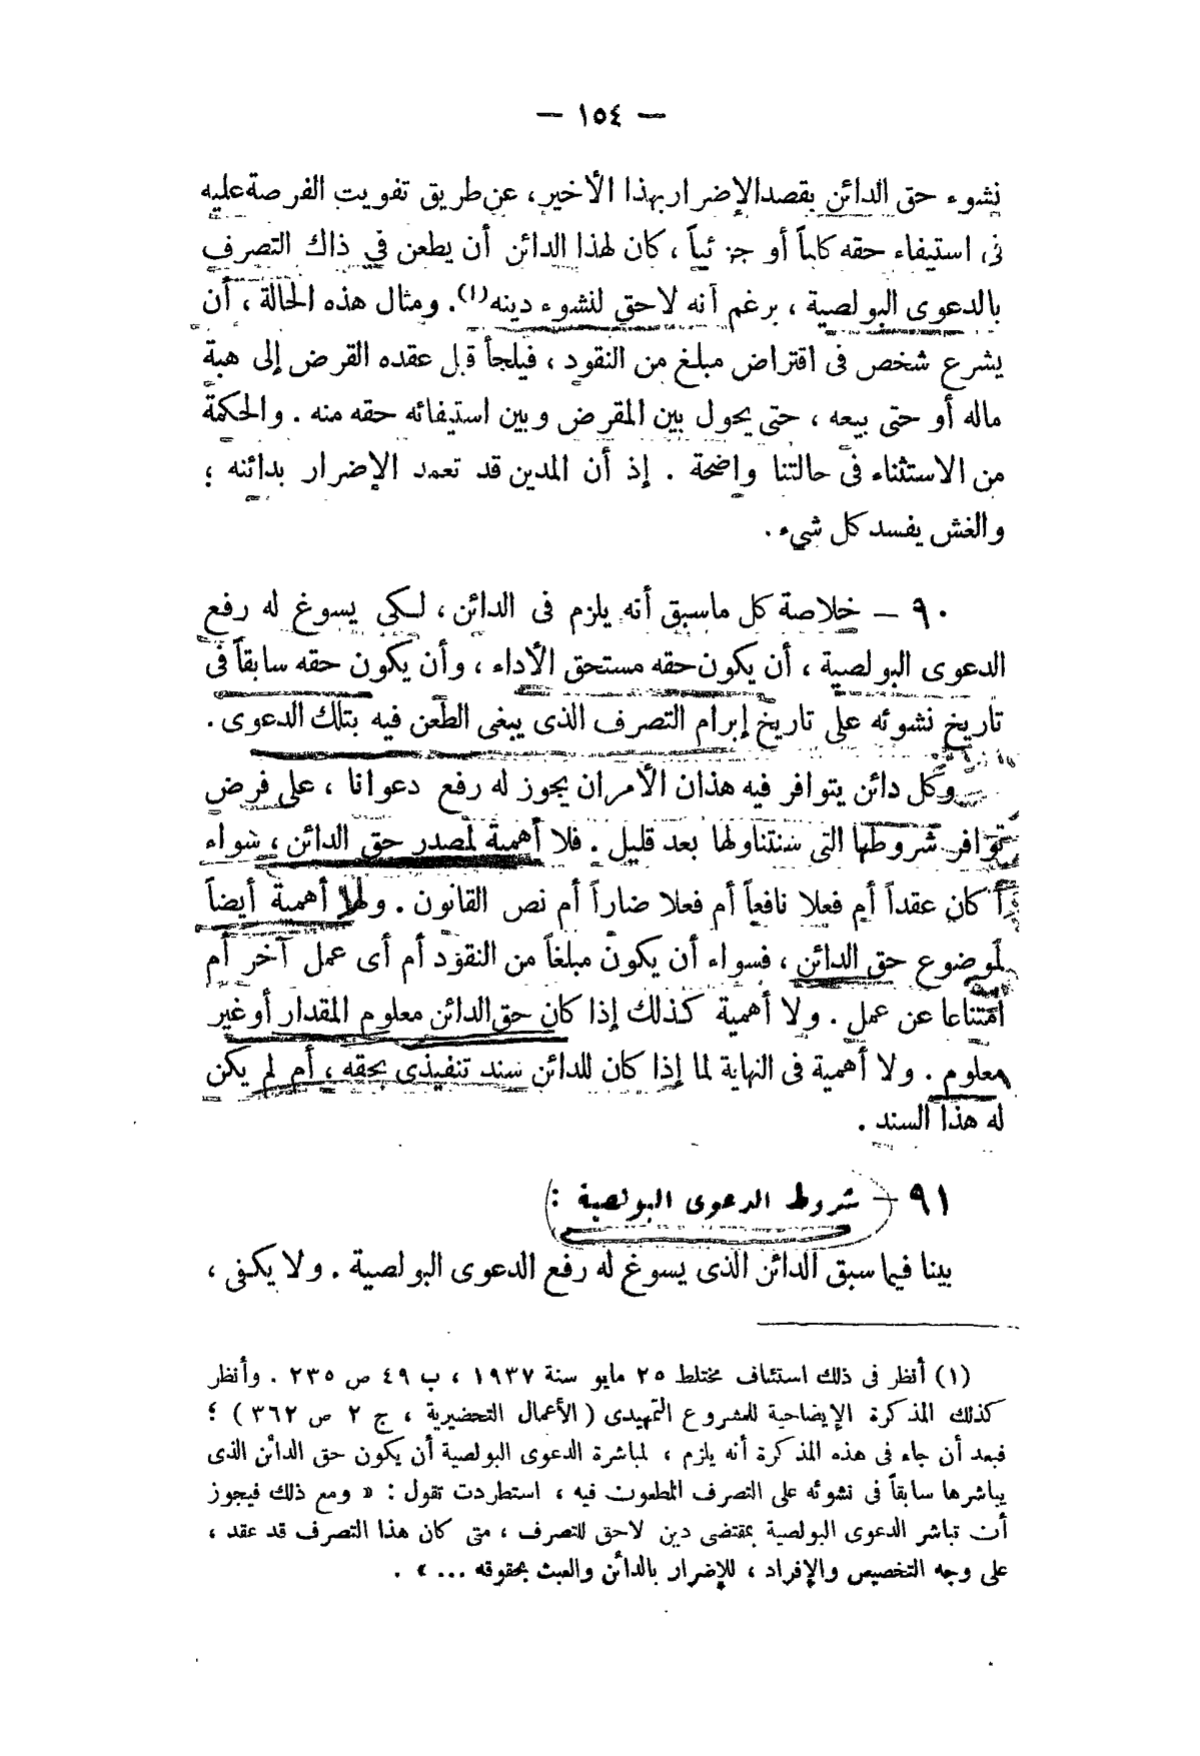 — ١٥٤ —
نشوء حق الدائن بقصد الإضرار بهذا الأخير، عن طريق تفويت الفرصة عليه
فى استيفاء حقه كلياً أو جزئياً ، كان لهذا الدائن أن يطعن في ذاك التصرف
بالدعوى البولصية ، برغم أنه لاحق لنشوء دينه(١). ومثال هذه الحالة ، أن
يشرع شخص فى اقتراض مبلغ من النقود ، فيلجأ قبل عقده القرض إلى هبة
ماله أو حتى بيعه ، حتى يحول بين المقرض وبين استيفائه حقه منه . والحكمة
من الاستثناء فى حالتنا واضحة . إذ أن المدين قد تعمد الإضرار بدائنه ؛
والغش يفسد كل شيء .
٩٠ — خلاصة كل ما سبق أنه يلزم فى الدائن ، لكى يسوغ له رفع
الدعوى البولصية ، أن يكون حقه مستحق الأداء ، وأن يكون حقه سابقاً فى
تاريخ نشوئه على تاريخ إبرام التصرف الذى يبغى الطعن فيه بتلك الدعوى .
وكل دائن يتوافر فيه هذان الأمران يجوز له رفع دعوانا ، على فرض
توافر شروطها التى سنتناولها بعد قليل . فلا أهمية لمصدر حق الدائن ، سواء
أكان عقداً أم فعلا نافعاً أم فعلا ضاراً أم نص القانون . ولا أهمية أيضاً
لموضوع حق الدائن ، فسواء أن يكون مبلغاً من النقود أم أى عمل آخر أم
امتناعا عن عمل . ولا أهمية كذلك إذا كان حق الدائن معلوم المقدار أو غير
معلوم . ولا أهمية فى النهاية لما إذا كان للدائن سند تنفيذى بحقه ، أم لم يكن
له هذا السند .
٩١ — شروط الدعوى البولصية :
بينا فيما سبق الدائن الذى يسوغ له رفع الدعوى البولصية . ولا يكفى ،
(١) أنظر فى ذلك استئناف مختلط ٢٥ مايو سنة ١٩٣٧ ، ب ٤٩ ص ٢٣٥ . وأنظر
كذلك المذكرة الإيضاحية للمشروع التمهيدى ( الأعمال التحضيرية ، ج ٢ ص ٣٦٢ ) ؛
فبعد أن جاء فى هذه المذكرة أنه يلزم ، لمباشرة الدعوى البولصية أن يكون حق الدائن الذى
يباشرها سابقاً فى نشوئه على التصرف المطعون فيه ، استطردت تقول : « ومع ذلك فيجوز
أن تباشر الدعوى البولصية بمقتضى دين لاحق للتصرف ، متى كان هذا التصرف قد عقد ،
على وجه التخصيص والإفراد ، للإضرار بالدائن والعبث بحقوقه ... » .